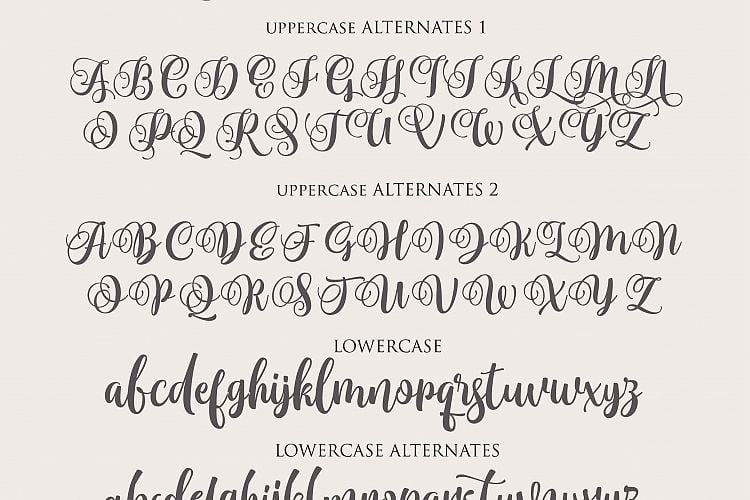 UPPERCASE ALTERNATES 1
A B C D E F G H I J K L M N
O P Q R S T U V W X Y Z
UPPERCASE ALTERNATES 2
A B C D E F G H I J K L M N
O P Q R S T U V W X Y Z
LOWERCASE
abcdefghijklmnopqrstuvwxyz
LOWERCASE ALTERNATES
abcdefghijklmnopqrstuvwxyz